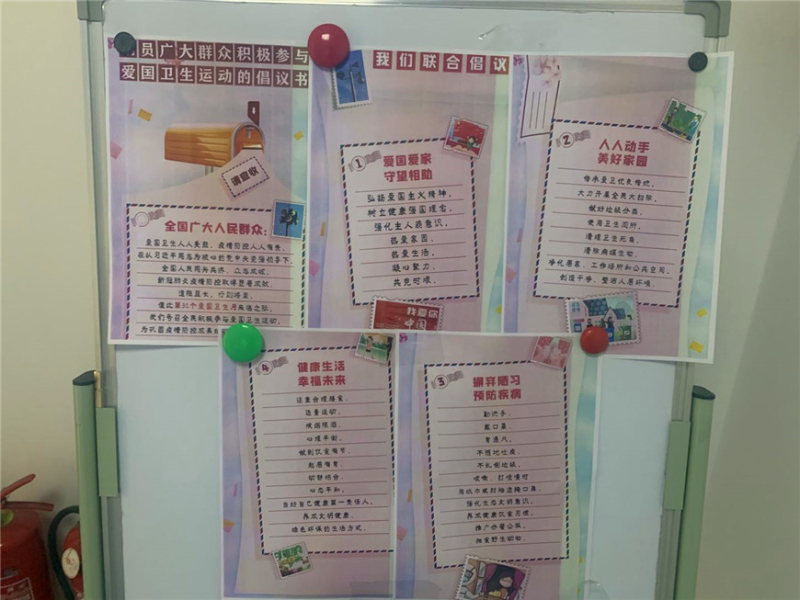 员广大群众积极参与
爱国卫生运动的倡议书
请查收
全国广大人民群众：
爱国卫生人人受益，疫情防控人人有责。
在以习近平同志为核心的党中央坚强领导下，
全国人民同舟共济、众志成城，
新冠肺炎疫情防控取得显著成效。
值此第32个爱国卫生月来临之际，
我们号召全民积极参与爱国卫生运动，
我们联合倡议
1
爱国爱家
守望相助
弘扬爱国主义精神，
树立健康强国理念，
强化主人翁意识，
热爱家园，
热爱生活，
凝心聚力，
共克时艰。
我爱你
中国
2
人人动手
美好家园
传承爱卫优良传统，
大力开展全民大扫除，
做好垃圾分类，
使用卫生厕所，
清理卫生死角，
清除病媒生物，
净化居家、工作场所和公共空间，
创造干净、整洁人居环境。
4
健康生活
幸福未来
注重合理膳食，
适量运动，
戒烟限酒，
心理平衡，
做到饮食有节，
起居有常，
动静结合，
心态平和，
当好自己健康第一责任人，
养成文明健康，
绿色环保的生活方式。
3
摒弃陋习
预防疾病
勤洗手，
戴口罩，
常通风，
不随地吐痰，
不乱倒垃圾，
咳嗽、打喷嚏时
用纸巾或肘袖遮掩口鼻，
强化生态文明意识，
养成健康饮食习惯，
推广分餐公筷，
拒食野生动物。